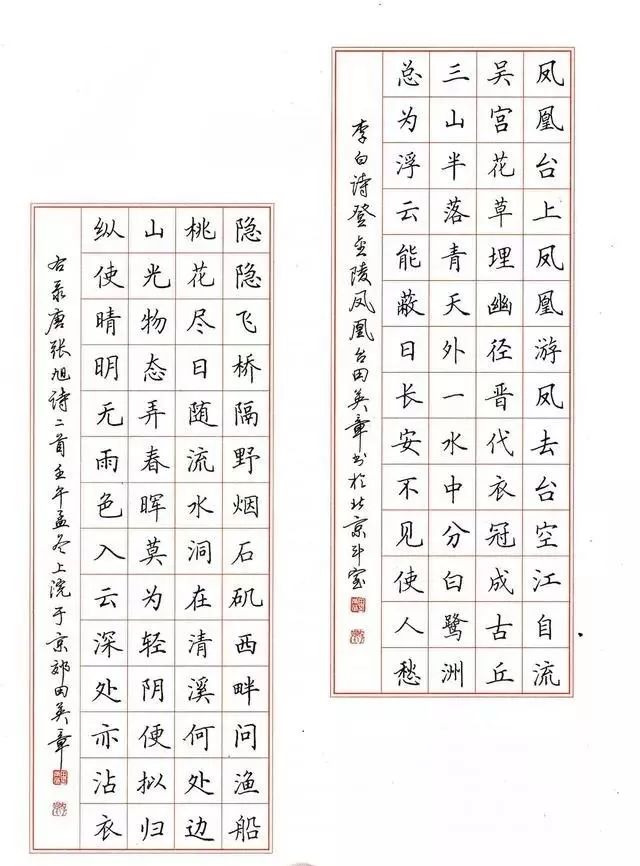 凤凰台上凤凰游凤去台空江自流
吴宫花草埋幽径晋代衣冠成古丘
三山半落青天外一水中分白鹭洲
总为浮云能蔽日长安不见使人愁
李白诗登金陵凤凰台田英章书於北京斗室
隐隐飞桥隔野烟石矶西畔问渔船
桃花尽日随流水洞在清溪何处边
山光物态弄春晖莫为轻阴便拟归
纵使晴明无雨色入云深处亦沾衣
右录唐张旭诗二首壬午孟冬上浣于京郊田英章